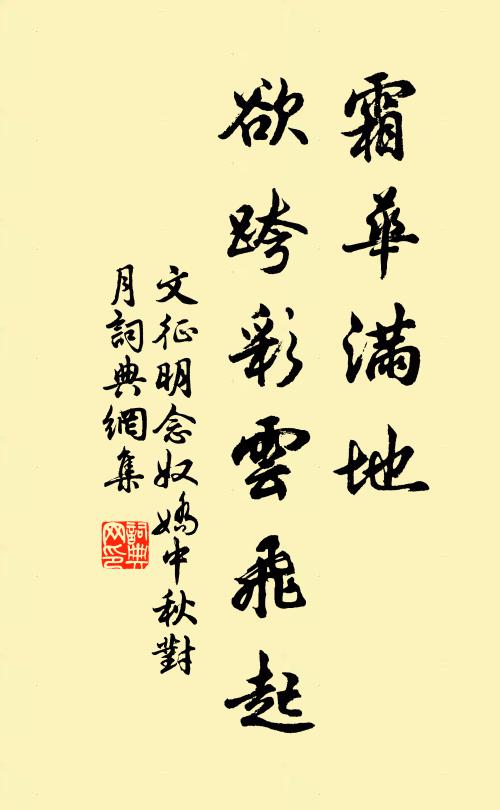 霜華滿地
欲跨彩雲飛起
文征明念奴嬌中秋對
月詞典網集
詞典
网印